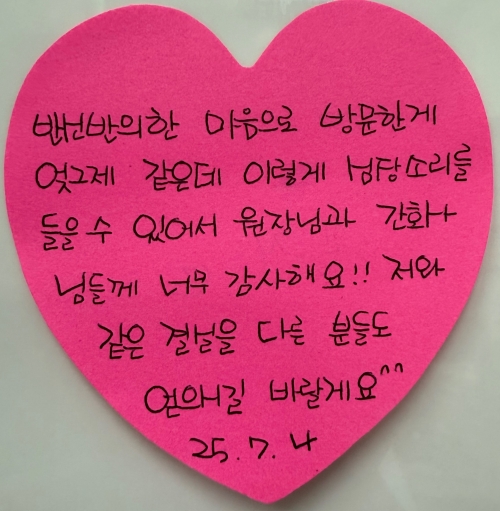 반신반의한 마음으로 방문한게
엊그제 같은데 이렇게 심장소리를
들을 수 있어서 원장님과 간호사
님들께 너무 감사해요!! 저와
같은 결실을 다른 분들도
얻으시길 바랄게요^^
25.7.4